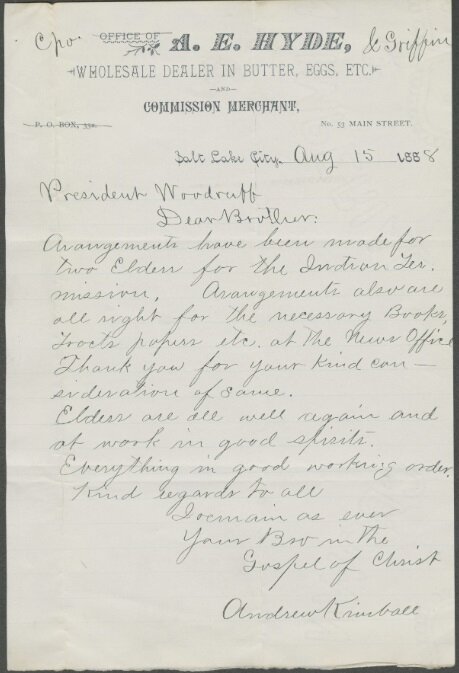 Cpo. OFFICE OF A. E. HYDE, & Griffin
WHOLESALE DEALER IN BUTTER, EGGS, ETC.
—AND—
COMMISSION MERCHANT,
P. O. BOX, 330. No. 53 MAIN STREET.
Salt Lake City, Aug 15 1888
President Woodruff
Dear Brother:
Arangements have been made for
two Elders for the Indian Ter.
mission. Arangements also are
all right for the necessary Books,
Tracts papers etc. at the News Office
Thank you for your kind con-
sideration of same.
Elders are all well again and
at work in good spirits.
Everything in good working order.
Kind regards to all
I remain as ever
Your Bro in the
Gospel of Christ
Andrew Kimball